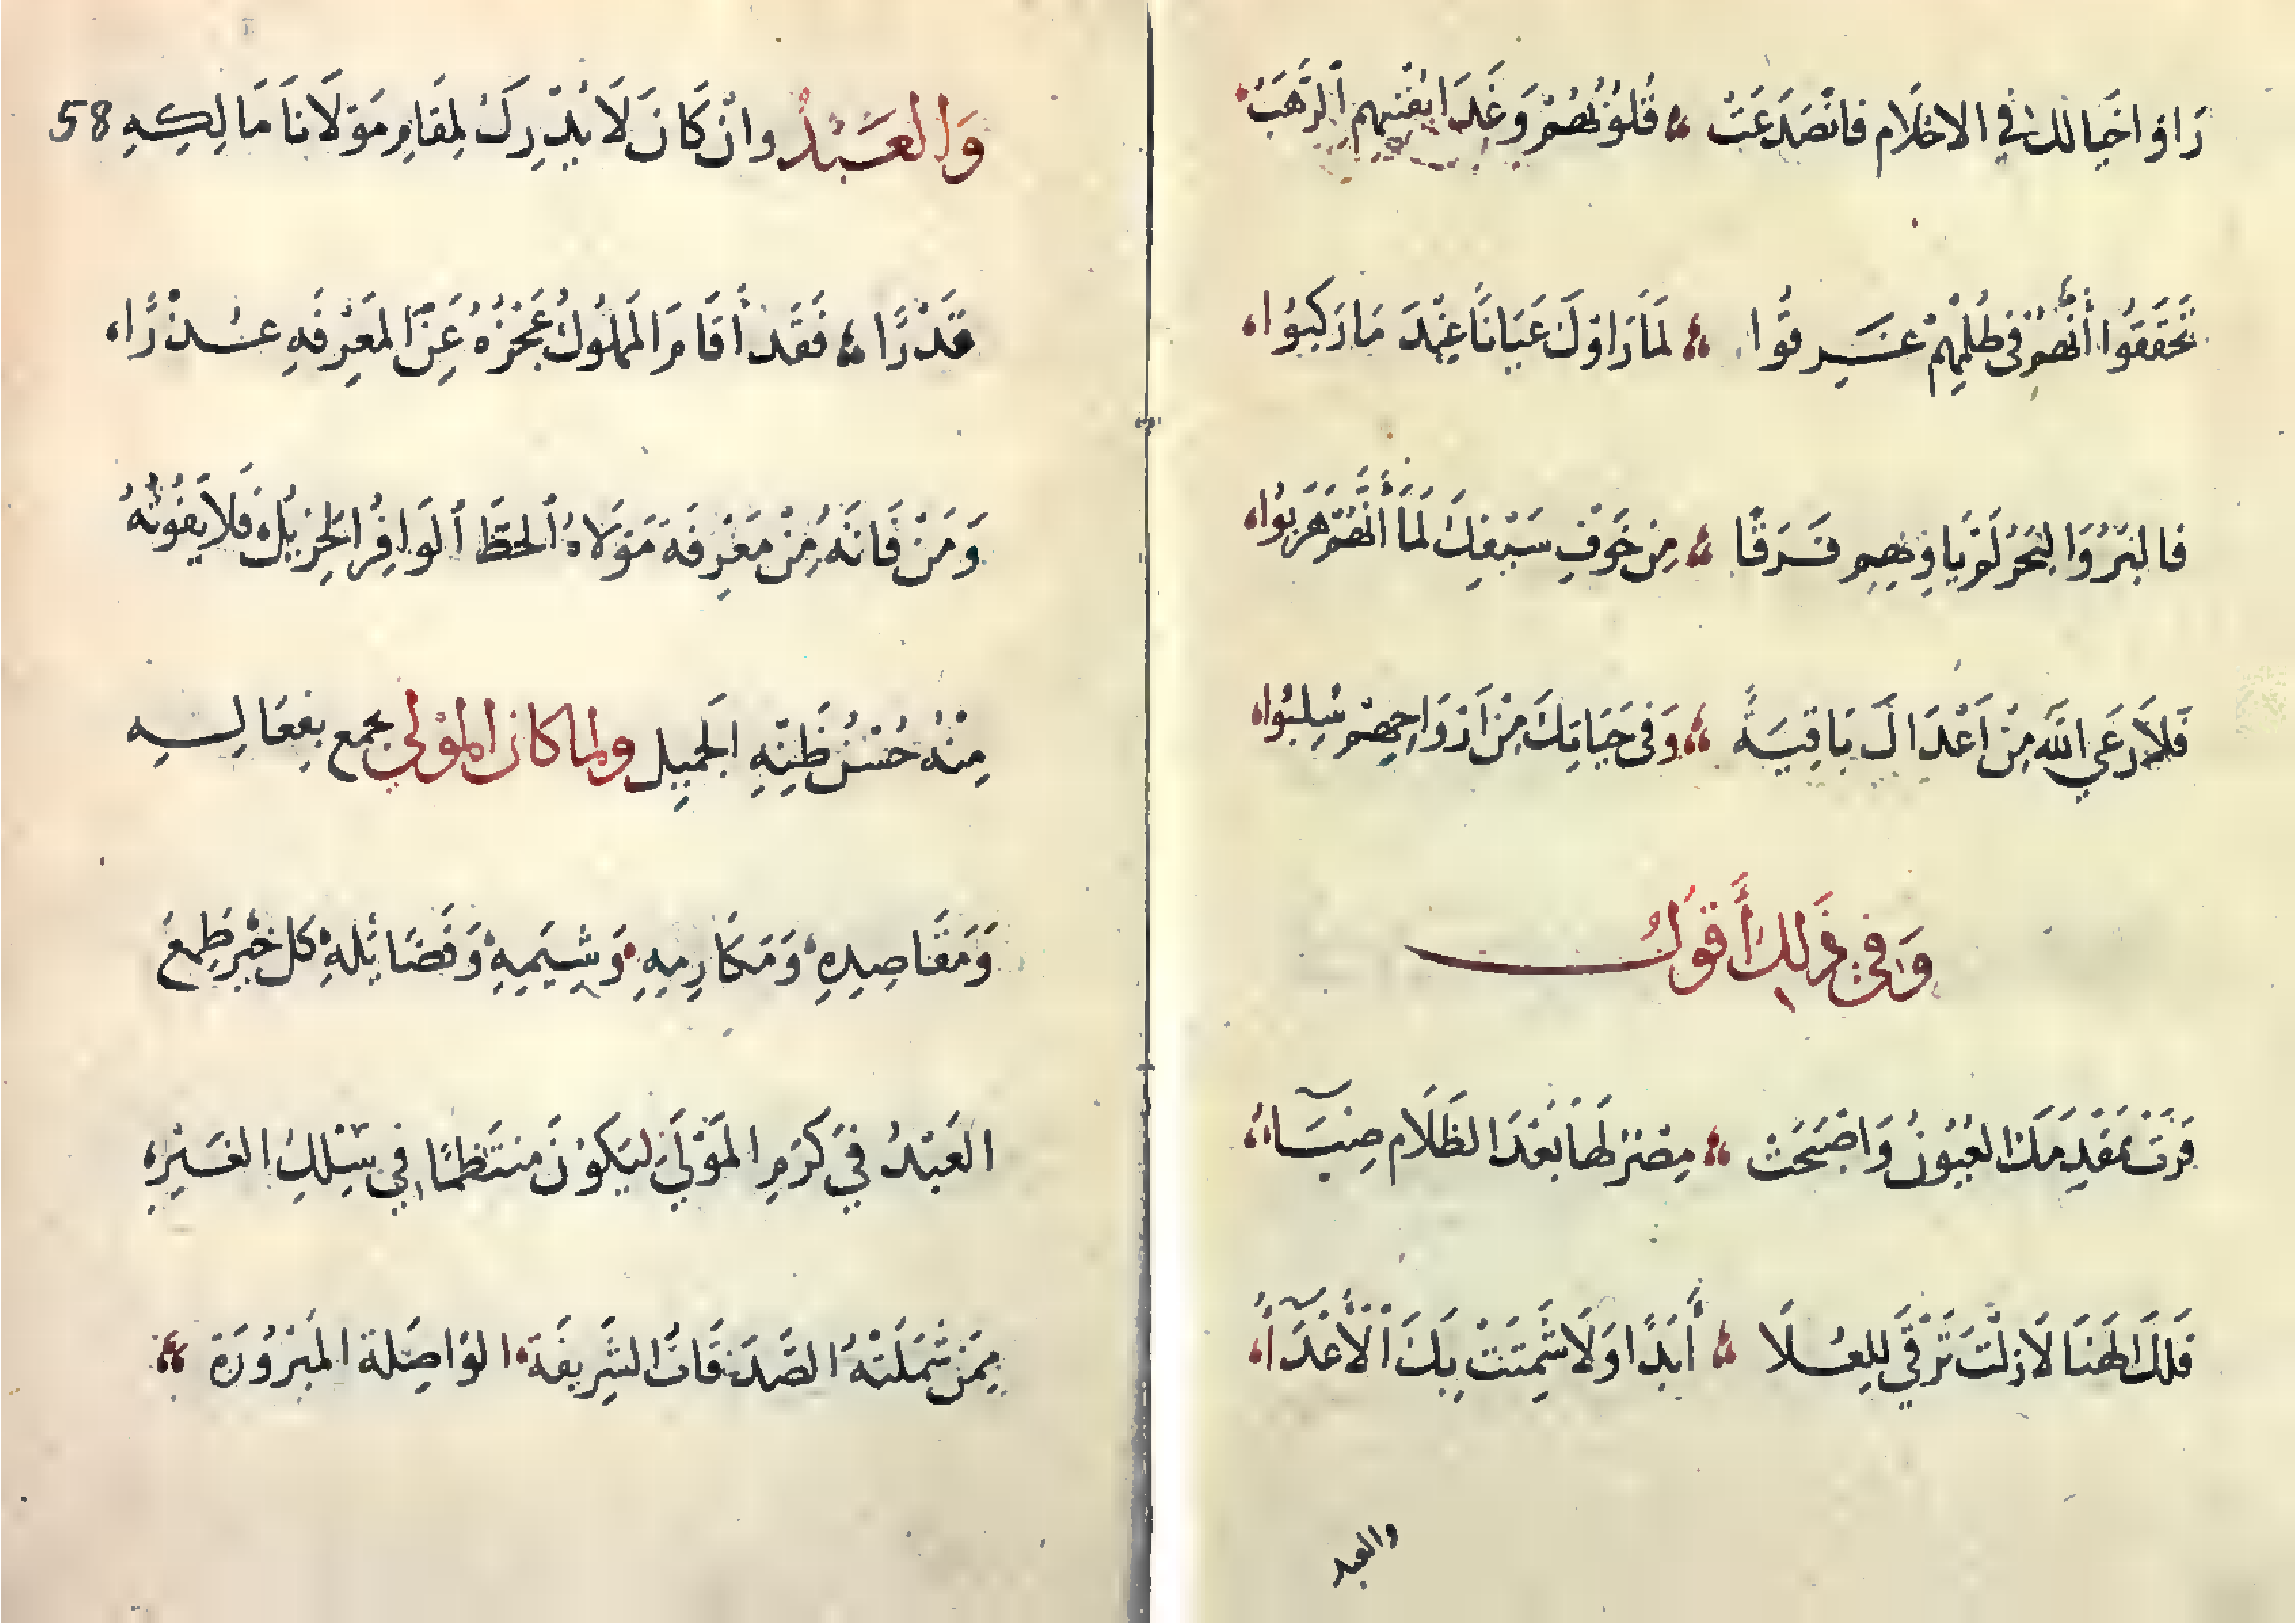 رَاوْا خَيالكَ في الاحْلَام فانْصَدَعَتْ ؞ قُلُوْبُهُمْ وَغَدَا يُفْنِيهِم اَلرَّهَبُ
تَحَقَّقُوا أَنَّهُمْ فى ظُلْمِهِمْ غَــرِقُوا ؞ لَمَّا رَاوْكَ عَيَانًا عِنْدَ مَا رَكِبُوا
فالبَرُّ وَالبَحْرُ لَمْ يَاوِيهِمِ فَــرَقًا ؞ مِنْ خَوْفِ سَيْفِكَ لَمَّا أَنَّهُمْ هَرَبُوا
فَلَا رَعَي اللَّه مِنْ اَعْدَاكَ بَاقِيَةً ؞ وَفى حَيَاتِكَ مِنْ اَرْوَاحِهِمْ سُلِبُوا
وَفي ذَلِكَ أَقُوْلُ
قَرَّتْ بمَقْدِمَكَ العُيُوْنُ وَاصْبَحَتْ ؞ مِصْرٌ لَهَا بَعْدَ الظَلَام ضِيَــآءُ
فَلَكَ اَلهَنَا لَا زِلْتَ تَرْقَي لِلعُــلَا ؞ أَبَدًا وَلَا شَمِتَتْ بِكَ اَلْأَعْدَآءُ
والعبد
وَالعَبْدُ وانْ كَانَ لَا يُدْرِكُ لِمقَامِ مَوْلَانَا مَالِكِهِ 58
قَدْرًا ؞ فَقَدْ أَقَامَ المَمْلُوكُ عَجْزُهُ عَنِ المَعْرِفَهِ عُــذْرًا
وَمَنْ فَاتَهُ مِنْ مَعْرِفَة مَوْلَاهُ اَلحَظَّ اَلوَافِرُ الجَزِيْلُ فَلَا يَفُوْتُهُ
مِنْهُ حُسْنُ ظَنِّهِ الجَمِيل ولما كان المَوْلي بجمع بفِعَالِــهِ
وَمَقَاصِدِهِ وَمَكَارِمِهِ وَشِيَمِهِ وَفَضَائلهِ كل خَيْر طَمِعَ
العَبْدُ فيْ كَرَمِ المَوْلَيَ ليَكُوْنَ منتَظمًا في سِلكِ الغَــيْرِ
مِمَنْ شَمَلَتْهُ الصَّدَقَاتُ الشَرِيفَة الوَاصِلَة المَبْرُوْرَة ؞